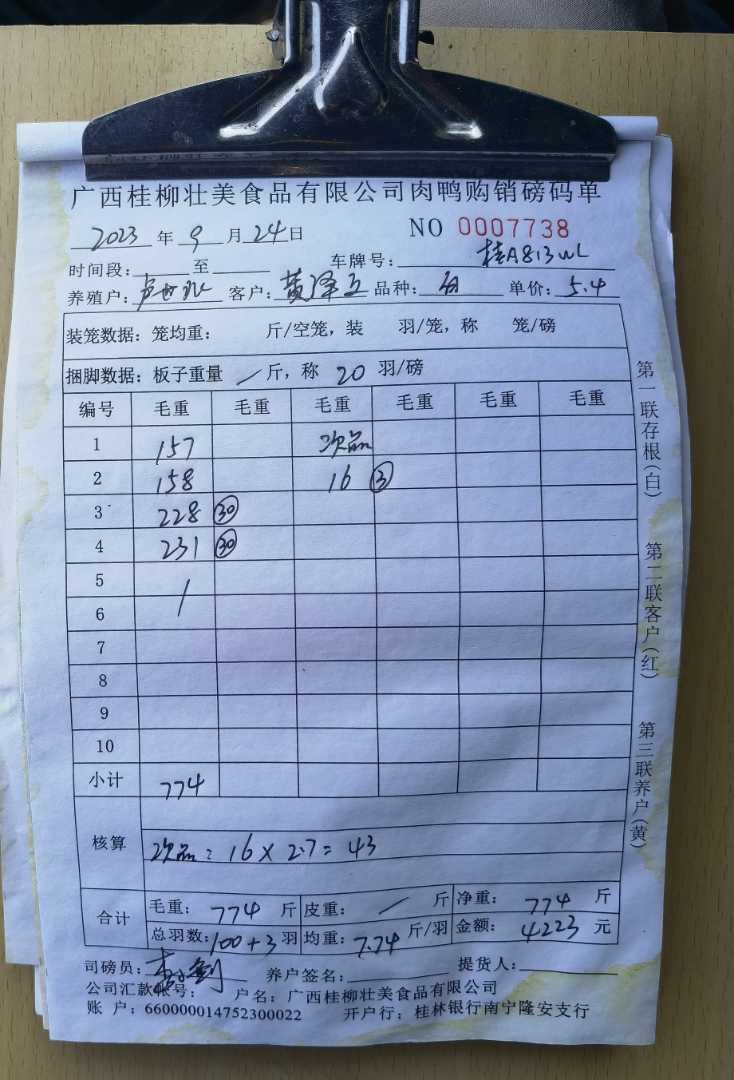 广西桂柳壮美食品有限公司肉鸭购销磅码单
2023 年 9 月 24 日 NO 0007738
时间段: 至 车牌号: 桂A813WL
养殖户: 客户: 黄泽立 品种: 白 单价: 5.4
装笼数据: 笼均重: 斤/空笼, 装 羽/笼, 称 笼/磅
捆脚数据: 板子重量 / 斤, 称 20 羽/磅
编号 毛重 毛重 毛重 毛重 毛重 毛重
1 157 次品
2 158 16 ③
3 228 ㉚
4 231 ㉚
5 /
6
7
8
9
10
小计 774
核算 次品: 16 × 2.7 = 43
合计 毛重: 774 斤 皮重: / 斤 净重: 774 斤
总羽数: 100+3 羽 均重: 7.74 斤/羽 金额: 4223 元
司磅员: 养户签名: 提货人:
公司汇款帐号: 户名: 广西桂柳壮美食品有限公司
账 户: 660000014752300022 开户行: 桂林银行南宁隆安支行
第一联存根(白)
第二联客户(红)
第三联养户(黄)